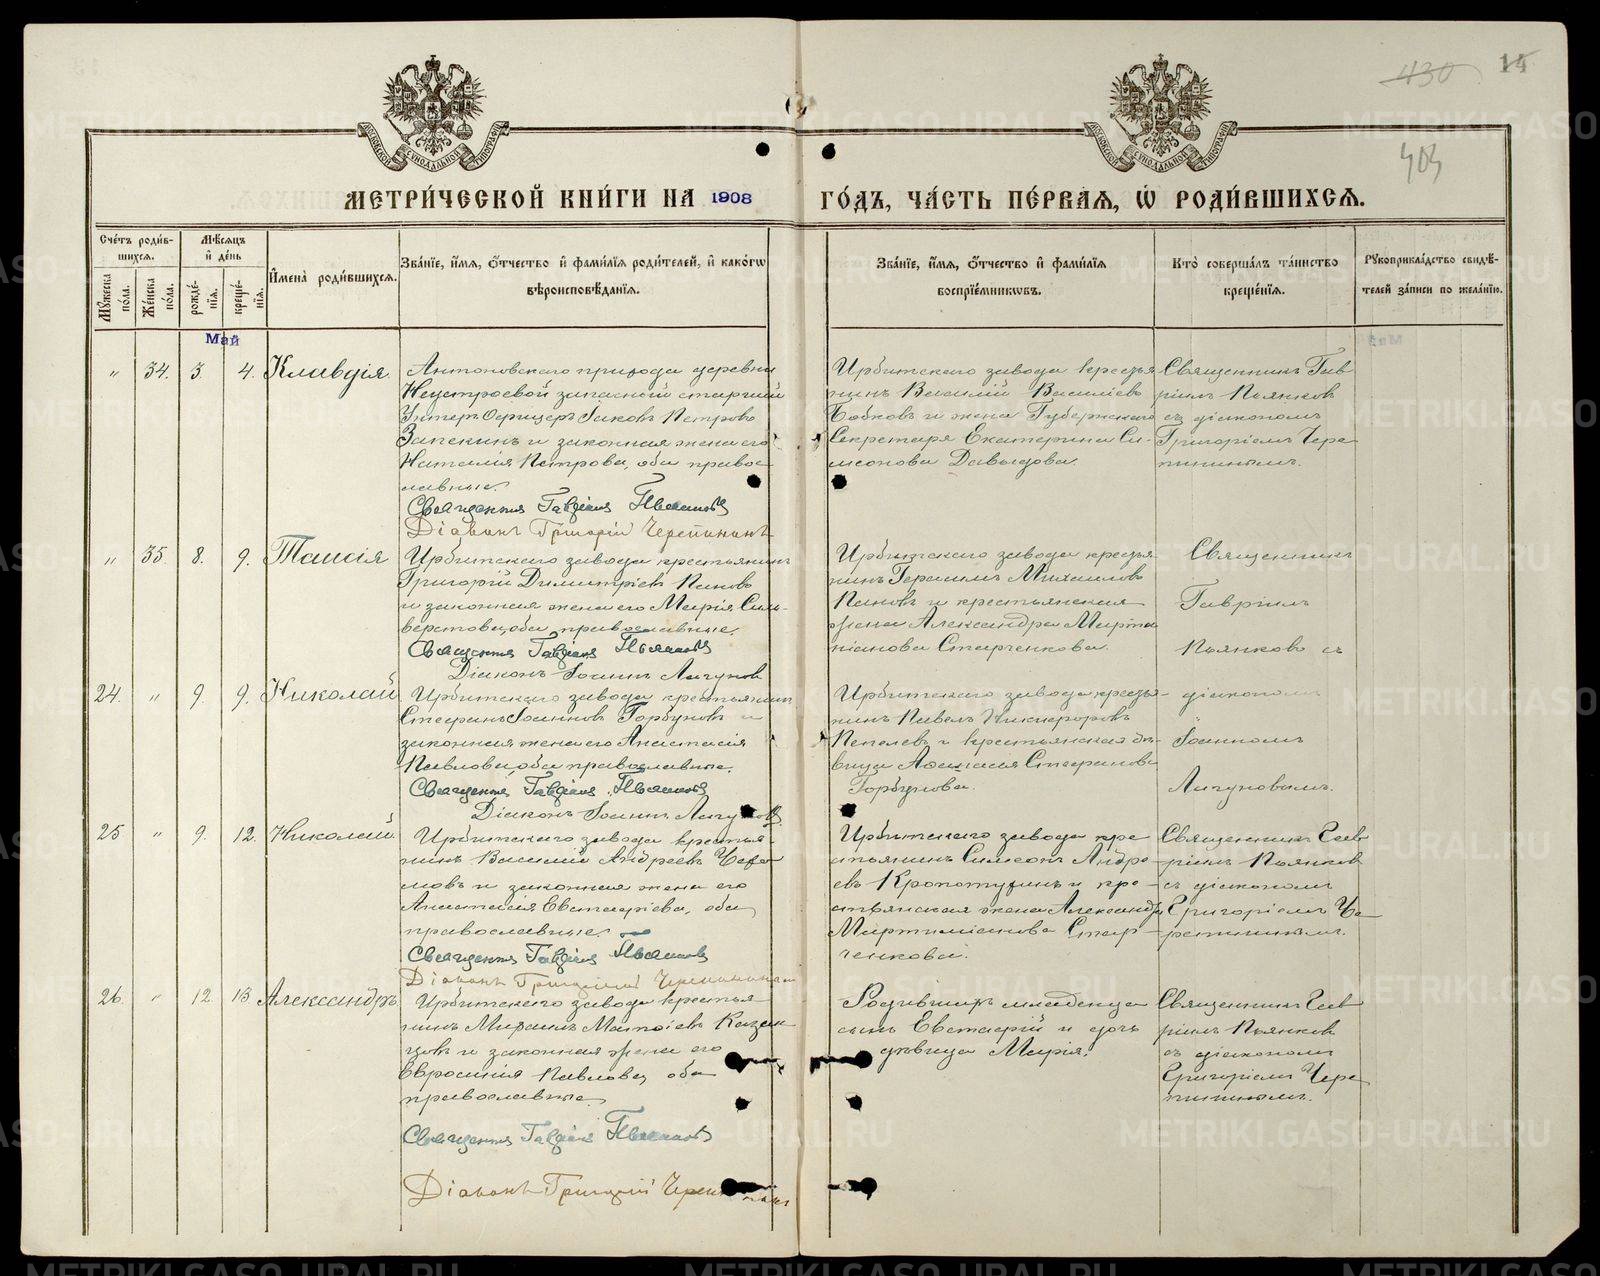 430 14
403
МОСКОВСКОЙ СѴНОДАЛЬНОЙ ТИПОГРАФІИ
МОСКОВСКОЙ СѴНОДАЛЬНОЙ ТИПОГРАФІИ
МЕТРИ́ЧЕСКОЙ КНИ́ГИ НА 1908 ГО́ДЪ, ЧА́СТЬ ПЕ́РВАѦ, Ѡ҆ РОДИ́ВШИХСѦ.
Сче́тъ роди́в-
шихся.
Мѣ́сяцъ
и҆ де́нь
Мꙋ́жеска
по́ла.
Же́нска
по́ла.
рожде́-
нїя.
креще́-
нїя.
И҆мена̀ роди́вшихся.
Зва́нїе, и҆́мя, ѻ҆́тчество и҆ фами́лїя роди́телей, и҆ како́гѡ
вѣроисповѣ́данїя.
Зва́нїе, и҆́мя, ѻ҆́тчество и҆ фами́лїя
воспрїе́мникѡвъ.
Кто̀ соверша́лъ та́инство
креще́нїя.
Рꙋкоприкла́дство свидѣ́-
телей за́писи по жела́нїю.
Май
„ 34. 3. 4. Клавдія.
Антоновскаго прихода деревни
Нестроевой запасной старшій
Унтеръ Офицеръ Іаковъ Петровъ
Запекинъ и законная жена его
Наталія Петрова, оба право-
славные.
Священникъ Гавріилъ Пьянковъ
Діаконъ Григорій Черепанинъ
Ирбитскаго завода крестья-
нинъ Василій Васильевъ
Бобковъ и жена Губернскаго
Секретаря Екатерина Си-
меонова Давыдова.
Священникъ Гав-
ріилъ Пьянковъ
съ діакономъ
Григоріемъ Чере-
панинымъ.
„ 35. 8. 9. Таисія
Ирбитскаго завода крестьянинъ
Григорій Димитріевъ Пановъ
и законная жена его Марія Силь-
верстова, оба православные.
Священникъ Гавріилъ Пьянковъ
Діаконъ Іоаннъ Лагуновъ
Ирбитскаго завода крестья-
нинъ Герасимъ Михаиловъ
Пановъ и крестьянская
жена Александра Марти-
ніанова Старченкова.
Священникъ
Гавріилъ
Пьянковъ съ
24. „ 9. 9. Николай
Ирбитскаго завода крестьянинъ
Стефанъ Іоанновъ Горбуновъ и
законная жена его Анастасія
Павлова, оба православные.
Священникъ Гавріилъ Пьянковъ
Діаконъ Іоаннъ Лагуновъ
Ирбитскаго завода крестья-
нинъ Павелъ Никифоровъ
Пепелевъ и крестьянская дѣ-
вица Афанасія Стефанова
Горбунова.
діакономъ
Іоанномъ
Лагуновымъ.
25 „ 9. 12. Николай.
Ирбитскаго завода крестья-
нинъ Василій Андреевъ
и законная жена его
Анастасія Евстафіева, оба
православные.
Священникъ Гавріилъ Пьянковъ
Діаконъ Григорій Черепанинъ
Ирбитскаго завода кре-
стьянинъ Симеонъ Андре-
евъ Кропотухинъ и кре-
стьянская жена Александра
Мартиніанова Стар-
ченкова.
Священникъ Гав-
ріилъ Пьянковъ
съ діакономъ
Григоріемъ Че-
репанинымъ.
26. „ 12. 13. Александръ
Ирбитскаго завода крестья-
нинъ Казан-
цевъ и законная жена его
Евросинія Павлова, оба
православные.
Священникъ Гавріилъ Пьянковъ
Діаконъ Григорій Черепанинъ
Родившихъ младенца
сынъ Евстафій и дочь
дѣвица Марія.
Священникъ Гав-
ріилъ Пьянковъ
съ діакономъ
Григоріемъ Чере-
панинымъ.
METRIKI.GASO-URAL.RU